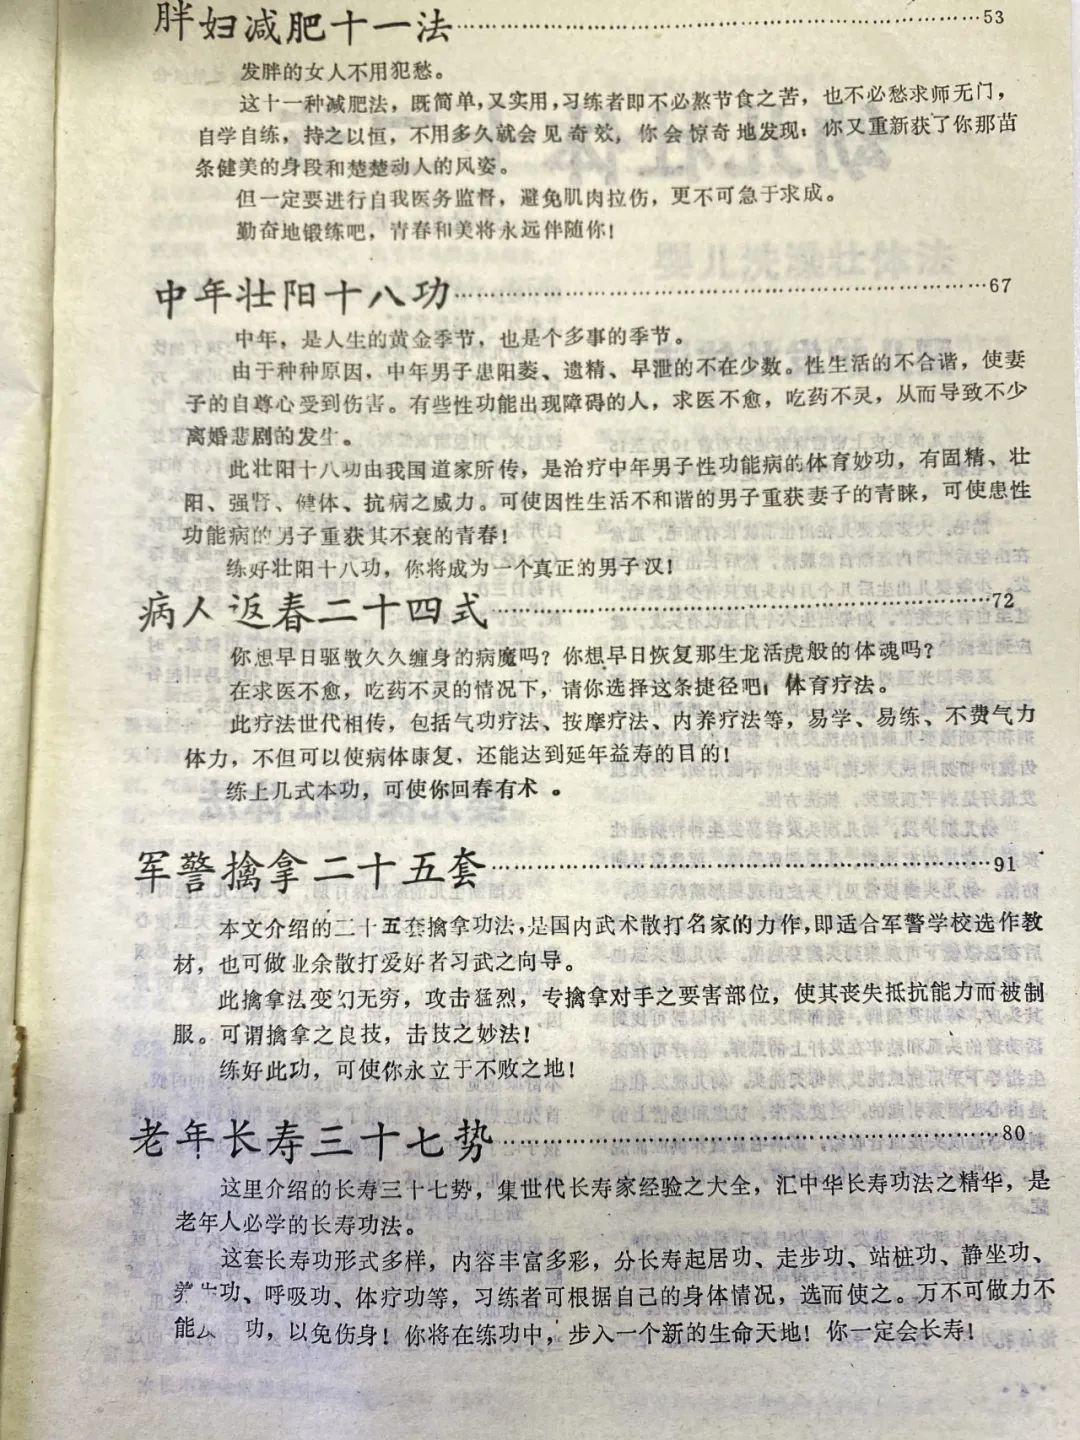 胖妇减肥十一法……………………………………………………53
发胖的女人不用犯愁。
这十一种减肥法，既简单，又实用，习练者即不必熬节食之苦，也不必愁求师无门，
自学自练，持之以恒，不用多久就会见奇效，你会惊奇地发现：你又重新获了你那苗
条健美的身段和楚楚动人的风姿。
但一定要进行自我医务监督，避免肌肉拉伤，更不可急于求成。
勤奋地锻练吧，青春和美将永远伴随你！
中年壮阳十八功……………………………………………………67
中年，是人生的黄金季节，也是个多事的季节。
由于种种原因，中年男子患阳萎、遗精、早泄的不在少数。性生活的不合谐，使妻
子的自尊心受到伤害。有些性功能出现障碍的人，求医不愈，吃药不灵，从而导致不少
离婚悲剧的发生。
此壮阳十八功由我国道家所传，是治疗中年男子性功能病的体育妙功，有固精、壮
阳、强肾、健体、抗病之威力。可使因性生活不和谐的男子重获妻子的青睐，可使患性
功能病的男子重获其不衰的青春！
练好壮阳十八功，你将成为一个真正的男子汉！
病人返春二十四式…………………………………………………72
你想早日驱散久久缠身的病魔吗？你想早日恢复那生龙活虎般的体魂吗？
在求医不愈，吃药不灵的情况下，请你选择这条捷径吧！体育疗法。
此疗法世代相传，包括气功疗法、按摩疗法、内养疗法等，易学、易练、不费气力
体力，不但可以使病体康复，还能达到延年益寿的目的！
练上几式本功，可使你回春有术。
军警擒拿二十五套…………………………………………………91
本文介绍的二十五套擒拿功法，是国内武术散打名家的力作，即适合军警学校选作教
材，也可做业余散打爱好者习武之向导。
此擒拿法变幻无穷，攻击猛烈，专擒拿对手之要害部位，使其丧失抵抗能力而被制
服。可谓擒拿之良技，击技之妙法！
练好此功，可使你永立于不败之地！
老年长寿三十七势…………………………………………………80
这里介绍的长寿三十七势，集世代长寿家经验之大全，汇中华长寿功法之精华，是
老年人必学的长寿功法。
这套长寿功形式多样，内容丰富多彩，分长寿起居功、走步功、站桩功、静坐功、
功、呼吸功、体疗功等，习练者可根据自己的身体情况，选而使之。万不可做力不
能 功，以免伤身！你将在练功中，步入一个新的生命天地！你一定会长寿！